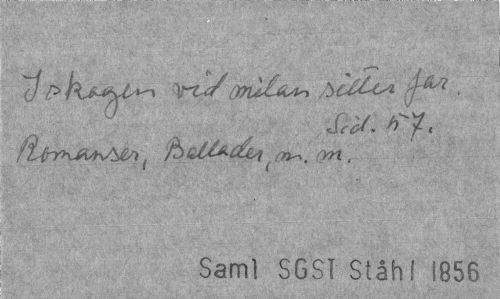 I skogen vid milan sitter far.
Sid. 57.
Romanser, Ballader, m. m.
Saml SGST Ståhl 1856